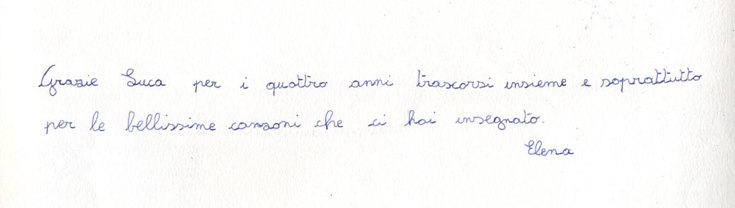 Grazie Luca per i quattro anni trascorsi insieme e soprattutto
per le bellissime canzoni che ci hai insegnato.
Elena